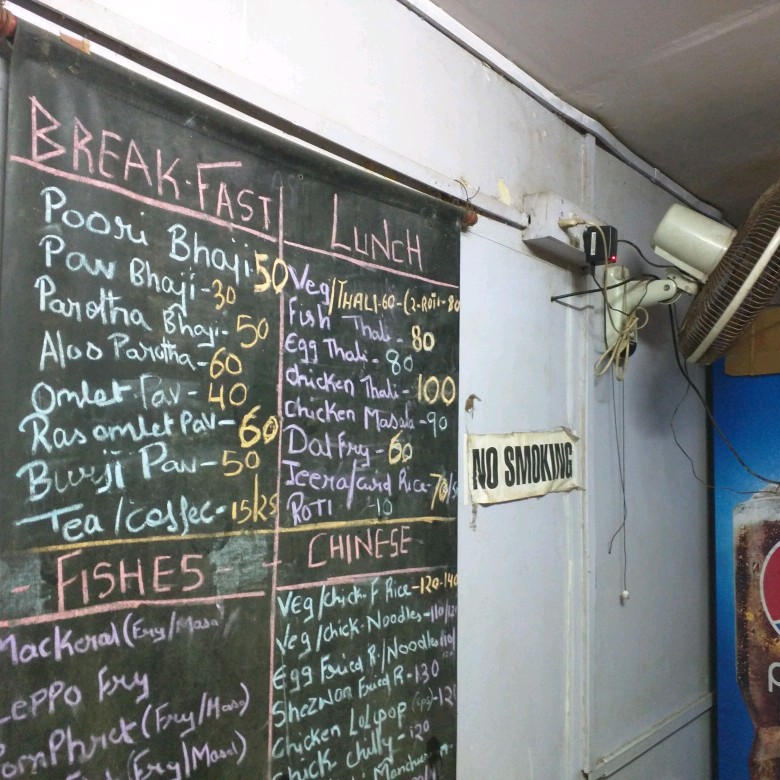 BREAK-FAST
Poori Bhaji 50
Pav Bhaji - 30
Parotha Bhaji - 50
Aloo Parotha - 60
Omlet Pav - 40
Ras omlet Pav - 60
Burji Pav - 50
Tea/coffee - 15/25
LUNCH
Veg/THALI-60-(2-ROTI-80
Fish Thali - 80
Egg Thali - 80
chicken Thali - 100
chicken Masala - 90
Dal Fry - 60
Jeera/curd Rice - 70/
ROTI -10
- FISHES -
Mackeral (Fry/Masa)
LEPPO Fry
Pomphret (Fry/Masa)
(Fry/Masal)
- CHINESE
Veg/chick. F Rice - 120-140
Veg/chick. Noodles - 110/
Egg Fried R./Noodles
Shezwan Fried R - 130
Chicken LoLipop
chick chilly - 120
NO SMOKING
p